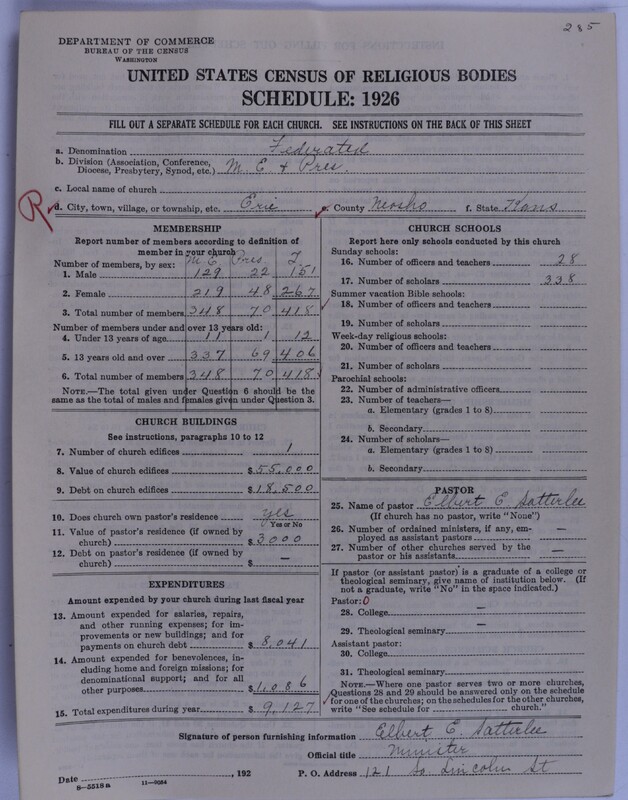 285
DEPARTMENT OF COMMERCE
BUREAU OF THE CENSUS
WASHINGTON
UNITED STATES CENSUS OF RELIGIOUS BODIES
SCHEDULE: 1926
FILL OUT A SEPARATE SCHEDULE FOR EACH CHURCH. SEE INSTRUCTIONS ON THE BACK OF THIS SHEET
a. Denomination Federated
b. Division (Association, Conference, Diocese, Presbytery, Synod, etc.) M. E. & Pres.
c. Local name of church
R d. City, town, village, or township, etc. Erie e. County Neosho f. State Kans
MEMBERSHIP
Report number of members according to definition of
member in your church
M. E. Pres T.
Number of members, by sex:
1. Male 129 22 151
2. Female 219 48 267
3. Total number of members 348 70 418
Number of members under and over 13 years old:
4. Under 13 years of age 11 1 12
5. 13 years old and over 337 69 406
6. Total number of members 348 70 418
NOTE.—The total given under Question 6 should be the
same as the total of males and females given under Question 3.
CHURCH BUILDINGS
See instructions, paragraphs 10 to 12
7. Number of church edifices 1
8. Value of church edifices $55,000
9. Debt on church edifices $18,500
10. Does church own pastor's residence yes
Yes or No
11. Value of pastor's residence (if owned by
church) $3000
12. Debt on pastor's residence (if owned by
church) $ —
EXPENDITURES
Amount expended by your church during last fiscal year
13. Amount expended for salaries, repairs,
and other running expenses; for im-
provements or new buildings; and for
payments on church debt $8,041
14. Amount expended for benevolences, in-
cluding home and foreign missions; for
denominational support; and for all
other purposes $1,086
15. Total expenditures during year $9,127
CHURCH SCHOOLS
Report here only schools conducted by this church
Sunday schools:
16. Number of officers and teachers 28
17. Number of scholars 338
Summer vacation Bible schools:
18. Number of officers and teachers
19. Number of scholars
Week-day religious schools:
20. Number of officers and teachers
21. Number of scholars
Parochial schools:
22. Number of administrative officers
23. Number of teachers—
a. Elementary (grades 1 to 8)
b. Secondary
24. Number of scholars—
a. Elementary (grades 1 to 8)
b. Secondary
PASTOR
25. Name of pastor Elbert E Satterlee
(If church has no pastor, write "None")
26. Number of ordained ministers, if any, em-
ployed as assistant pastors —
27. Number of other churches served by the
pastor or his assistants —
If pastor (or assistant pastor) is a graduate of a college or
theological seminary, give name of institution below. (If
not a graduate, write "No" in the space indicated.)
Pastor: 0
28. College —
29. Theological seminary —
Assistant pastor:
30. College
31. Theological seminary
NOTE.—Where one pastor serves two or more churches,
Questions 28 and 29 should be answered only on the schedule
for one of the churches; on the schedules for the other churches,
write "See schedule for church."
Signature of person furnishing information Elbert E. Satterlee
Official title Minister
Date , 192 P. O. Address 121 So. Lincoln St
8—5518 a 11—9684